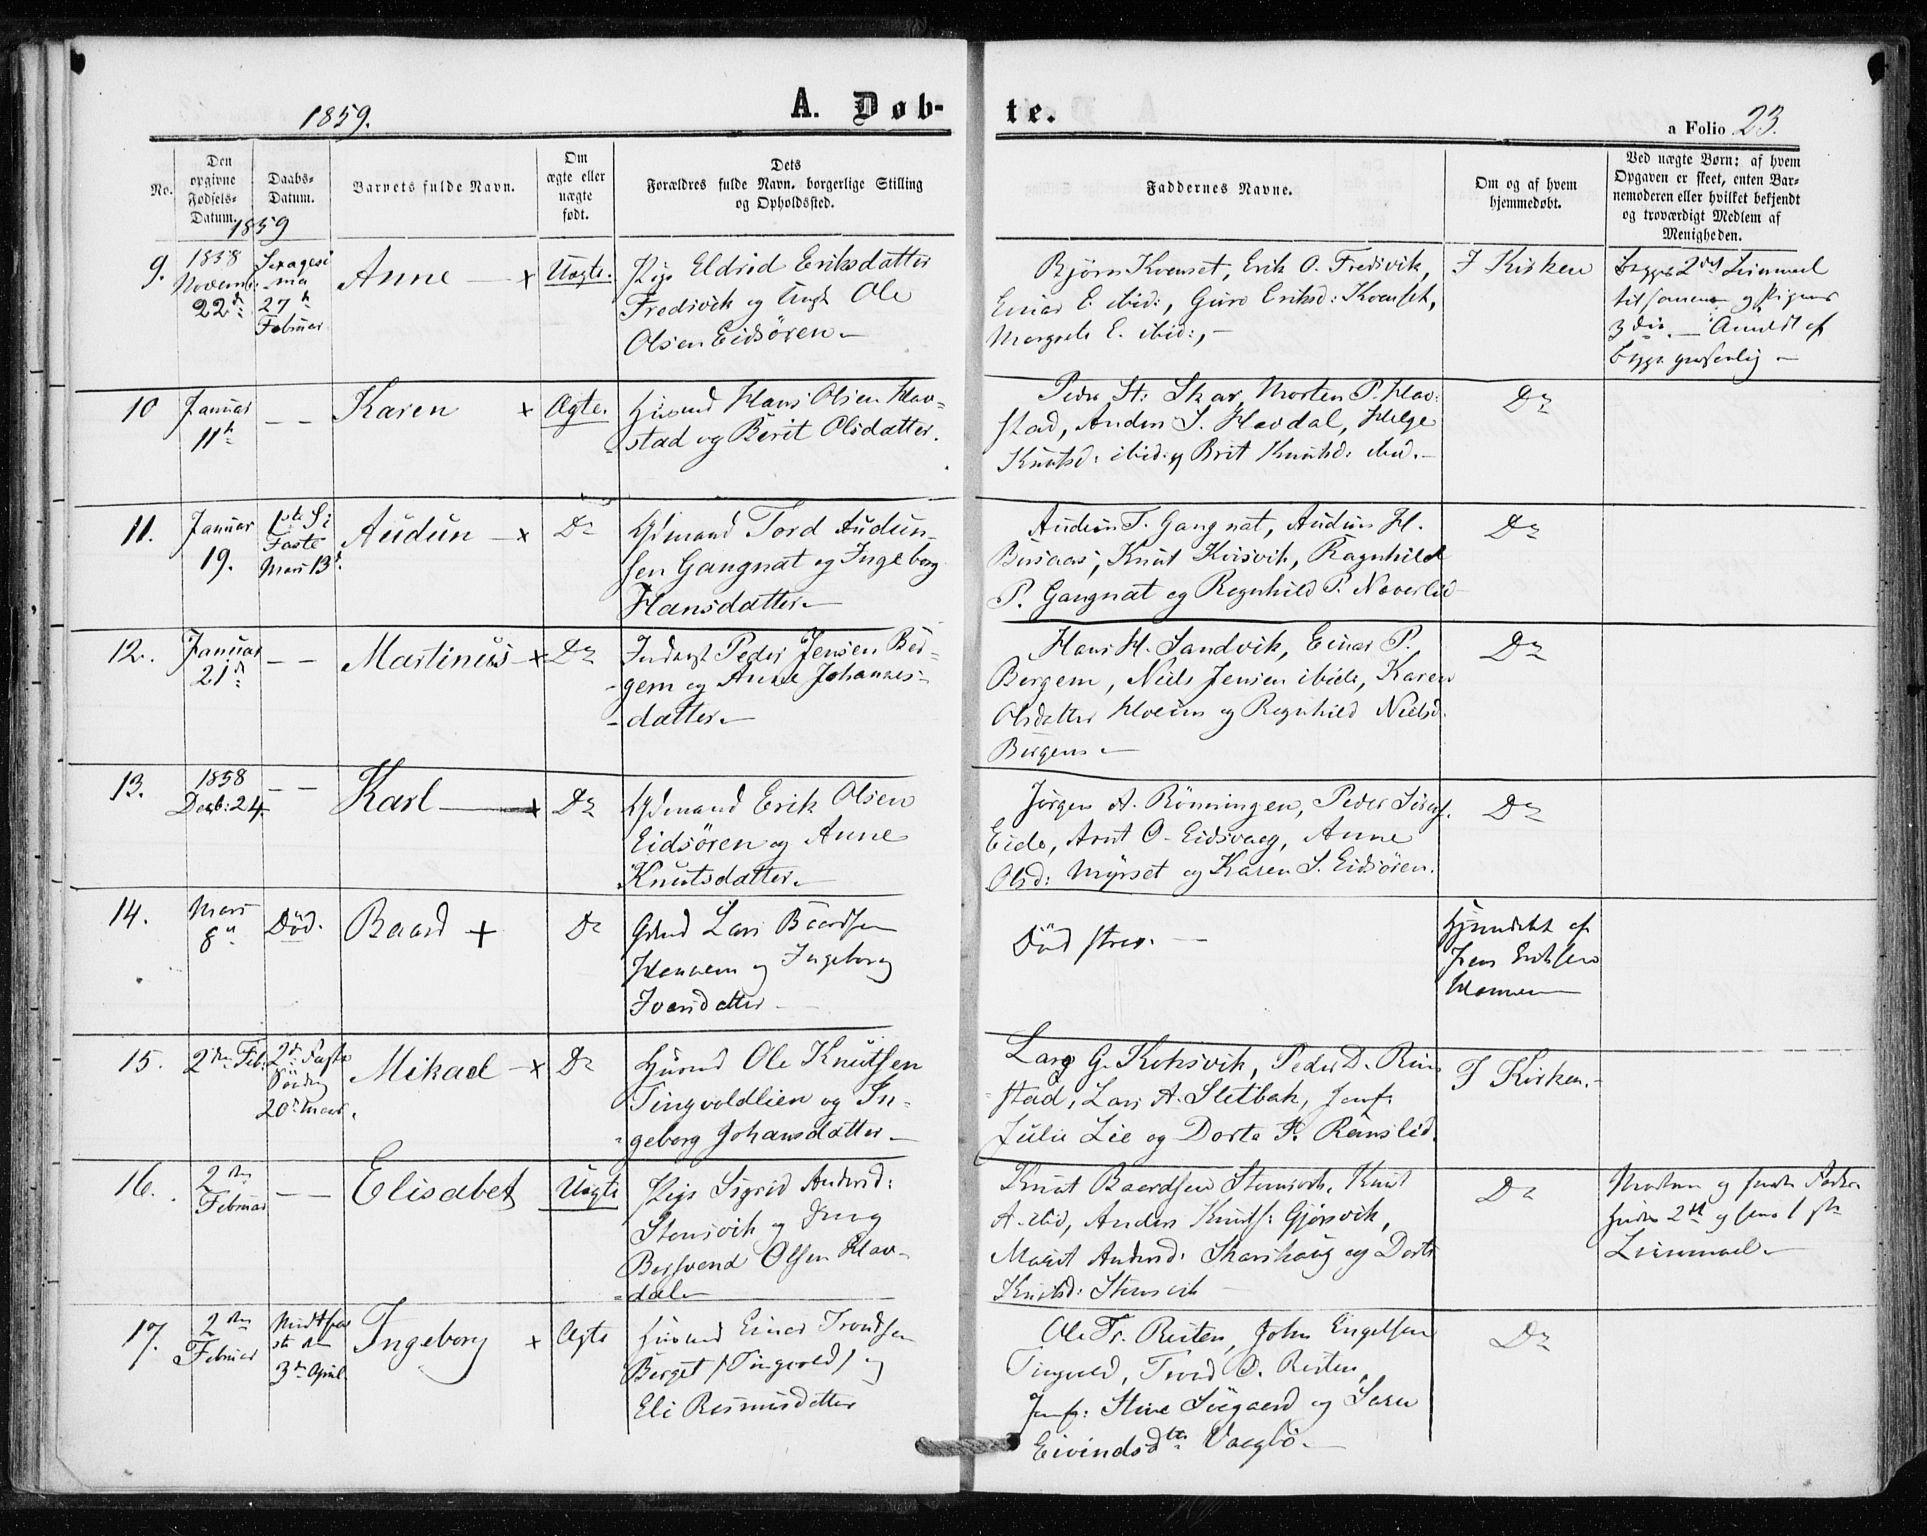 1859.
A. Døb-
te.
a Folio 23.
No.
Den
opgivne
Fødsels-
Datum.
Daabs-
Datum.
1859
Barnets fulde Navn.
Om
ægte eller
uægte
født.
Dets
Forældres fulde Navn, borgerlige Stilling
og Opholdssted.
Faddernes Navne.
Om og af hvem
hjemmedøbt.
Ved uægte Børn: af hvem
Opgaven er skeet, enten Bar-
nemoderen eller hvilket bekjendt
og troværdigt Medlem af
Menigheden.
9.
1858
Novemb:
22d
Sexagesi
ma
27
Februar
Anne
Uægte.
Pige Eldrid Eriksdatter
Fredsvik og Ole
Olsen Eidsören
Björn Kvenset, Erik O. Fredsvik,
Einar E. ibid:, Guro Eriksd: Kvenset,
Margrete E. ibid:,
I Kirken
begges 2d Leiermaal
tilsammen og Pigens
3die. Anmeldt af
begge
10
Januar
11te
Karen
Ægte.
Huusmd Hans Olsen Hav-
stad og Berit Olsdatter.
Peder H: Skar, Morten P. Hav-
stad, Anders S. Havdal, Helge
Knutsd: ibid: og Brit Knutsd: ibid.
Do
11.
Januar
19.
1ste S i
Faste
Mars 13d.
Audun
Do
Gdmand Tord Audun-
sen Gangnat og Ingeborg
Hansdatter
Audun T. Gangnat, Audun H.
Busaas, Knut Kvisvik, Ragnhild
P. Gangnat og Regnhild P. Naverlid
Do
12.
Januar
21d
Martinus
Do
Inderst Peder Jensen Ber-
gem og Anne Johannes-
datter
Hans H. Sandvik, Einar P.
Bergem, Niels Jensen ibid:, Karen
Olsdatter Hoem og Regnhild Nielsd.
Bergem
Do
13.
1858
Decb: 24.
Karl
Do
Gdmand Erik Olsen
Eidsören og Anne
Knutsdatter
Jørgen A. Rönningen, Peder
Eide, Arnt O. Eidsvaag, Anne
Olsd: Myrset og Karen S. Eidsören.
Do
14.
Mars
8
Död.
Baard
Do
Gdmd Lars Baardsen
Hanem og Ingeborg
Iversdatter
Död strax.
Hjemdöbt af
Jens Eriksen
Hanem
15.
2den Feb:
2d Faste
Söndag
20 Mars.
Mikael
Do
Huusmd Ole Knutsen
Tingvoldlien og In-
geborg Johansdatter
Lars G. Koksvik, Peder D. Rim-
stad, Lars A. Sletbak, Jomf:
Julie Lie og Dorte P. Remslid.
I Kirken.
16.
2den
Februar
Elisabet
Uægte
Pige Sigrid Andersd:
Stensvik og Ung
Bersvend Olsen Hav-
dal
Knut Baardsen Stensvik, Knut
A. ibid, Anders Knuts: Gjörsvik,
Marit Andersd: Skarshaug og Dorte
Knutsd: Stensvik
Do
Moderen og Fader
hendes 2d og hans 1ste
Leiermaal
17.
2den
Februar
Midtfas
te
3de April.
Ingeborg
Ægte
Huusmd Einar Trondsen
Berget (Tingvold) og
Eli Rasmusdatter
Ole Tr. Reiten, John Engelsen
Tingvold, Trond O. Reiten,
Jomf: Stine Süegaard og Sara
Eivindsdtr Vaagbö.
Do